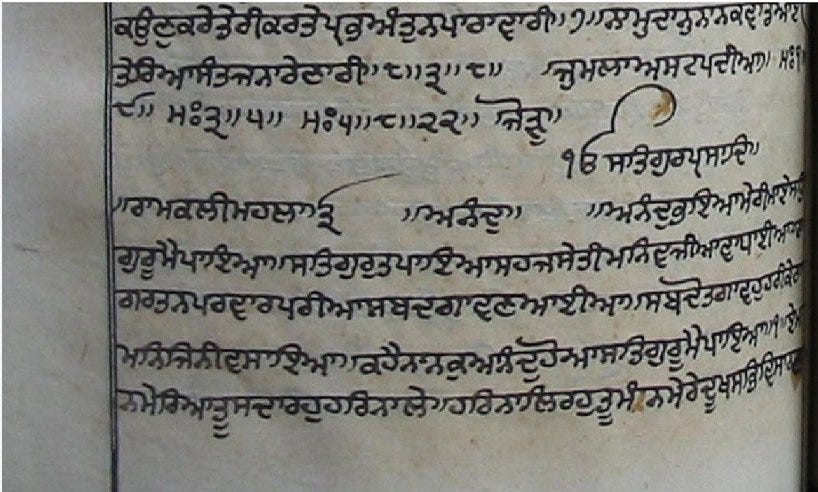 ਕਉਣੁਕਰੇਤੇਰੀਕਰਤੇਪ੍ਰਭੁਅੰਤੁਨਪਾਰਾਵਾਰੀ॥੭॥ਨਾਮੁਦਾਨੁਨਾਨਕ
ਤੇਰਿਆਸੰਤਜਨਾਰੇਣਾਰੀ॥੮॥੩॥੮॥ ਜੁਮਲਾਅਸਟਪਦੀਆ॥ ਮਃ੧
੮॥ ਮਃ੩॥੫॥ ਮਃ੫॥੮॥੨੨॥ ਜੋੜੁ॥
ੴ ਸਤਿਗੁਰਪ੍ਰਸਾਦਿ॥
॥ਰਾਮਕਲੀਮਹਲਾ੩ ॥ਅਨੰਦੁ॥ ॥ਅਨੰਦੁਭਇਆਮੇਰੀਮਾਏਸਤਿ
ਗੁਰੂਮੈਪਾਇਆ॥ਸਤਿਗੁਰੁਤਪਾਇਆਸਹਜਸੇਤੀਮਨਿਵਜੀਆਵਾਧਾਈਆ
ਰਤਨਪਰਵਾਰਪਰੀਆਸਬਦਗਾਵਣਆਈਆ॥ਸਬਦੋਤਗਾਵਹੁਹਰੀਕੇਰਾ
ਮਨਿਜਿਨੀਵਸਾਇਆ॥ਕਹੈਨਾਨਕੁਅਨੰਦੁਹੋਆਸਤਿਗੁਰੂਮੈਪਾਇਆ॥੧॥ਏਮ
ਨਮੇਰਿਆਤੂਸਦਾਰਹੁਹਰਿਨਾਲੇ॥ਹਰਿਨਾਲਿਰਹੁਤੂਮੰਨਮੇਰੇਦੂਖਸਭਿਵਿਸਾਰਣਾ